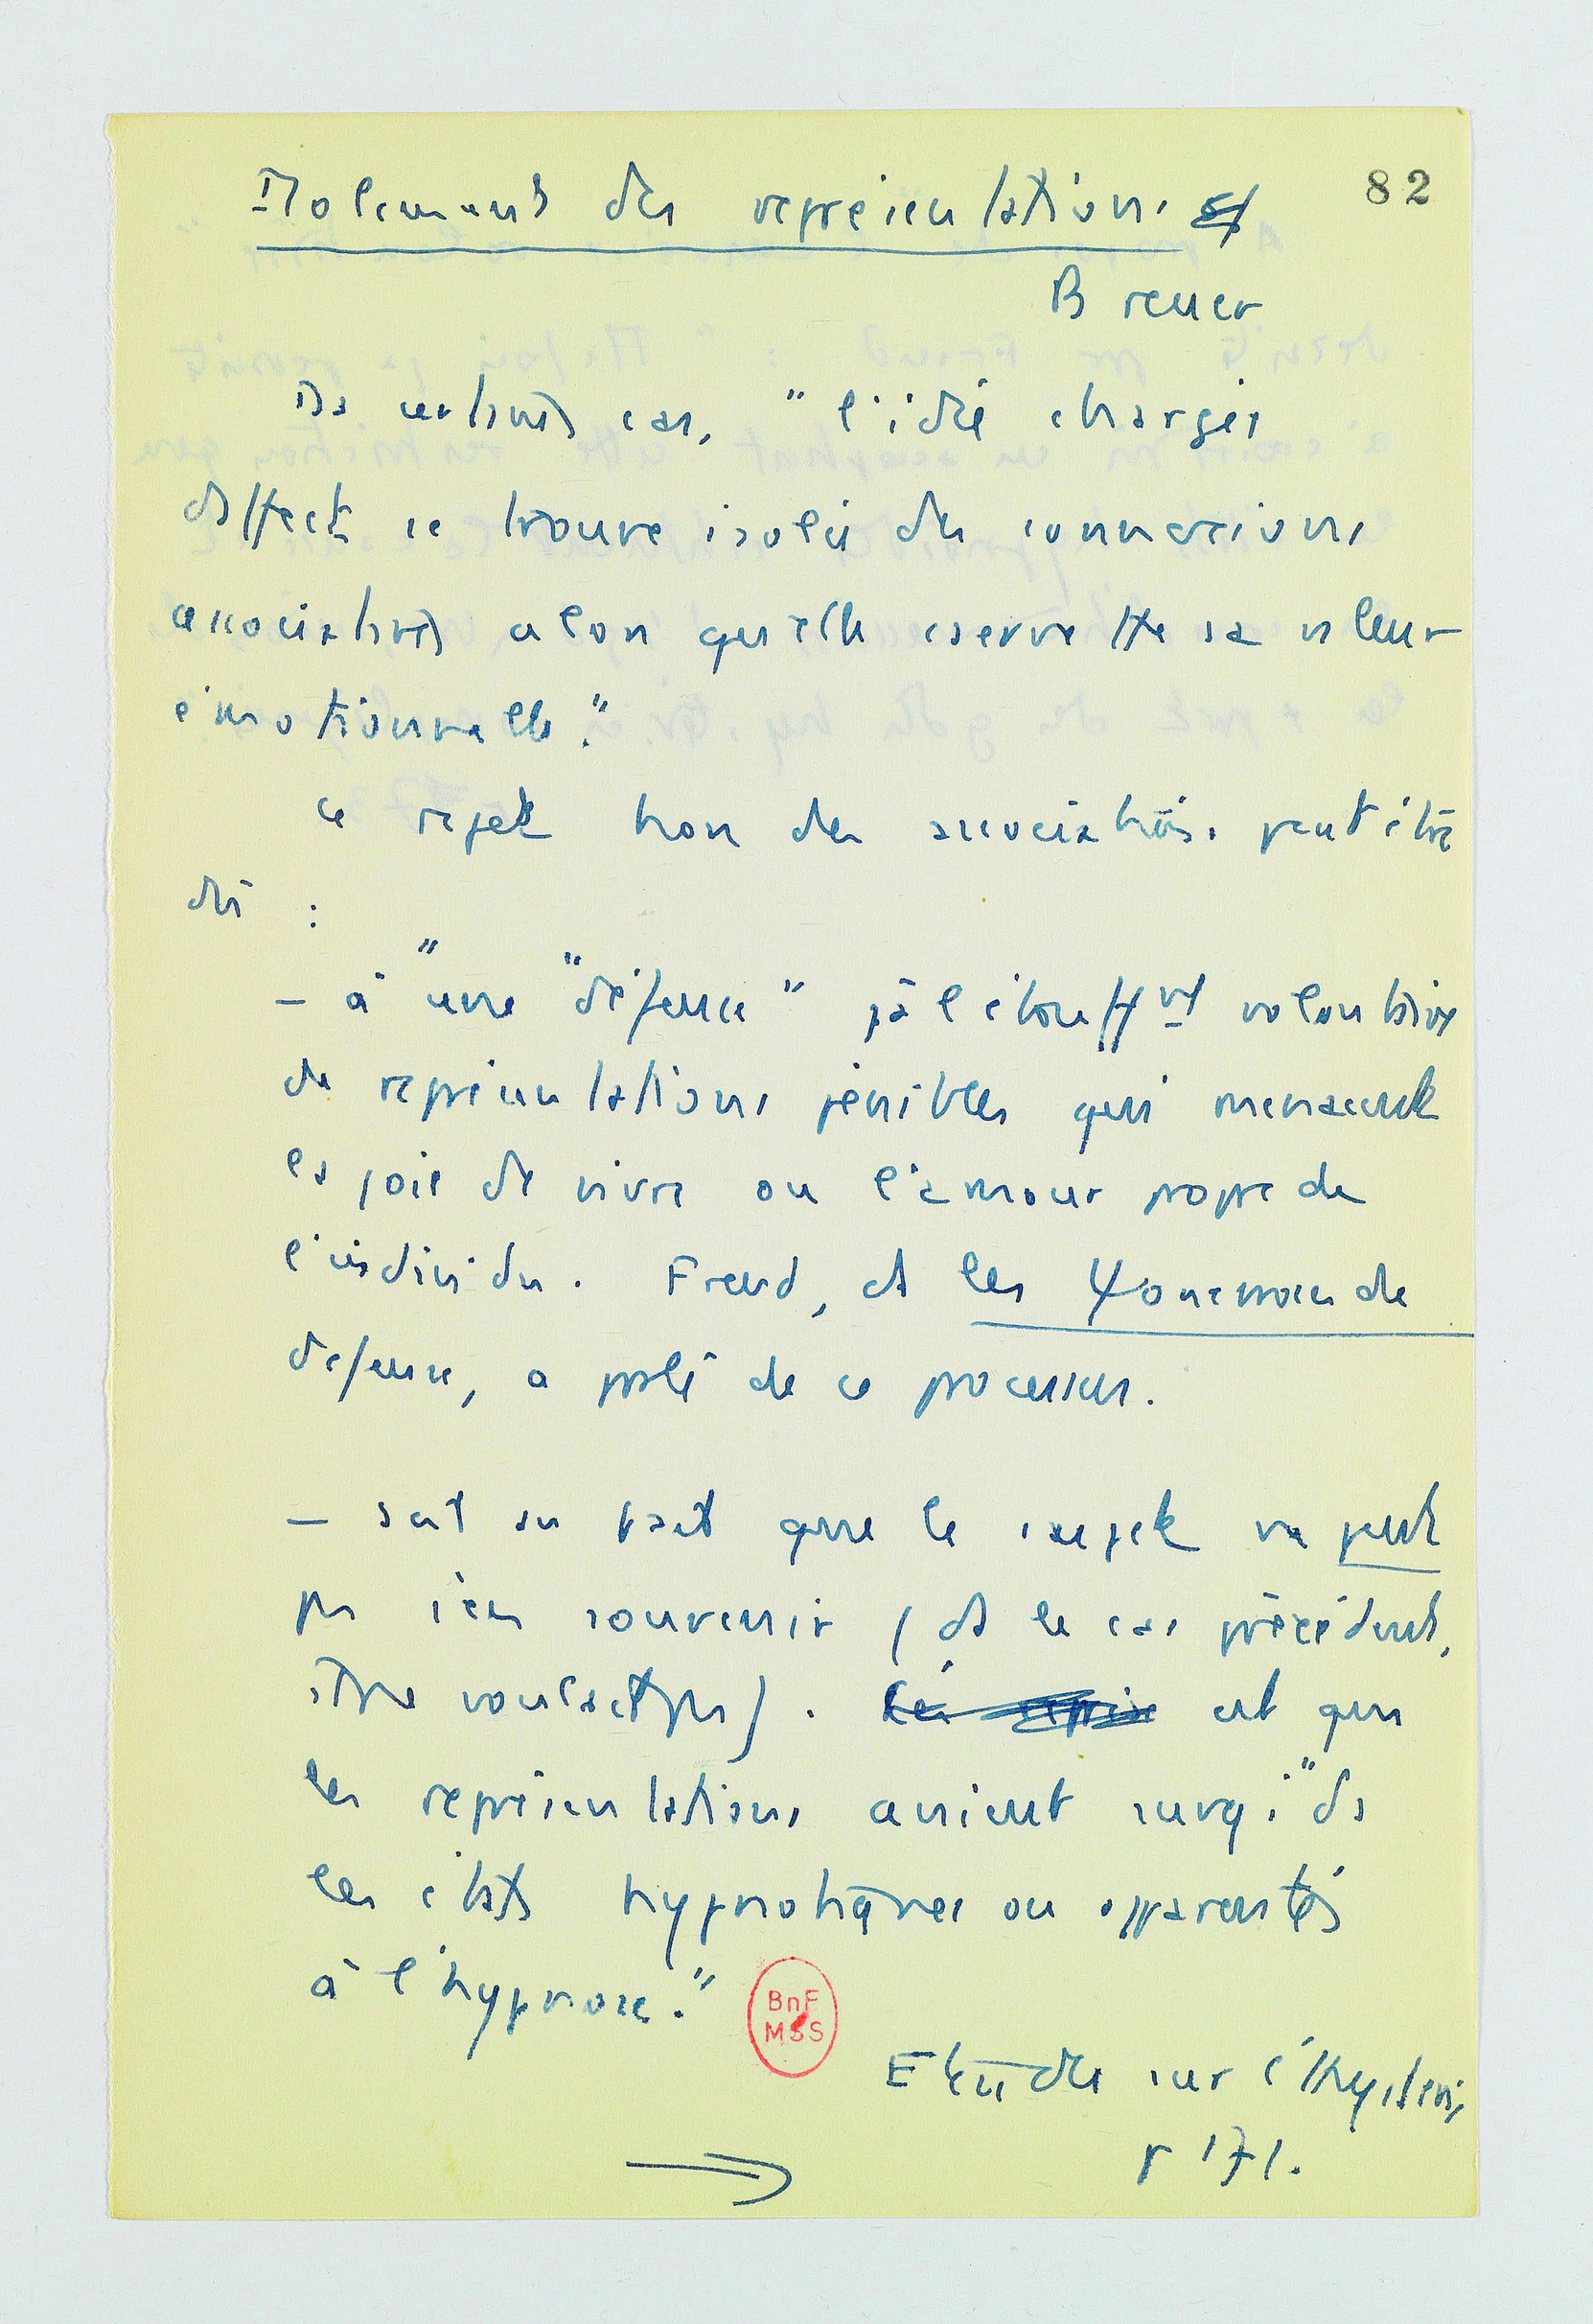 82
Isolement des représentations
Breuer
Ds certains cas, "l'idée chargée
d'affect se trouve isolée des connexions
associatives alors qu'elle conserve tte sa valeur
émotionnelle."
Ce rejet hors des associations peut être
dû :
- à "une "défense" pà l'étouffmt volontaire
de représentations pénibles qui menacent
la joie de vivre ou l'amour propre de
l'individu. Freud, ds les Ψonévroses de
défense, a parlé de ce processus.
- soit au fait que le sujet ne peut
pas s'en souvenir (ds le cas précédent,
il ne voulait pas). est que
les représentations avaient surgi "ds
les états hypnotiques ou apparentés
à l'hypnose."
BnF
MSS
Etudes sur l'Hystérie,
p 171.